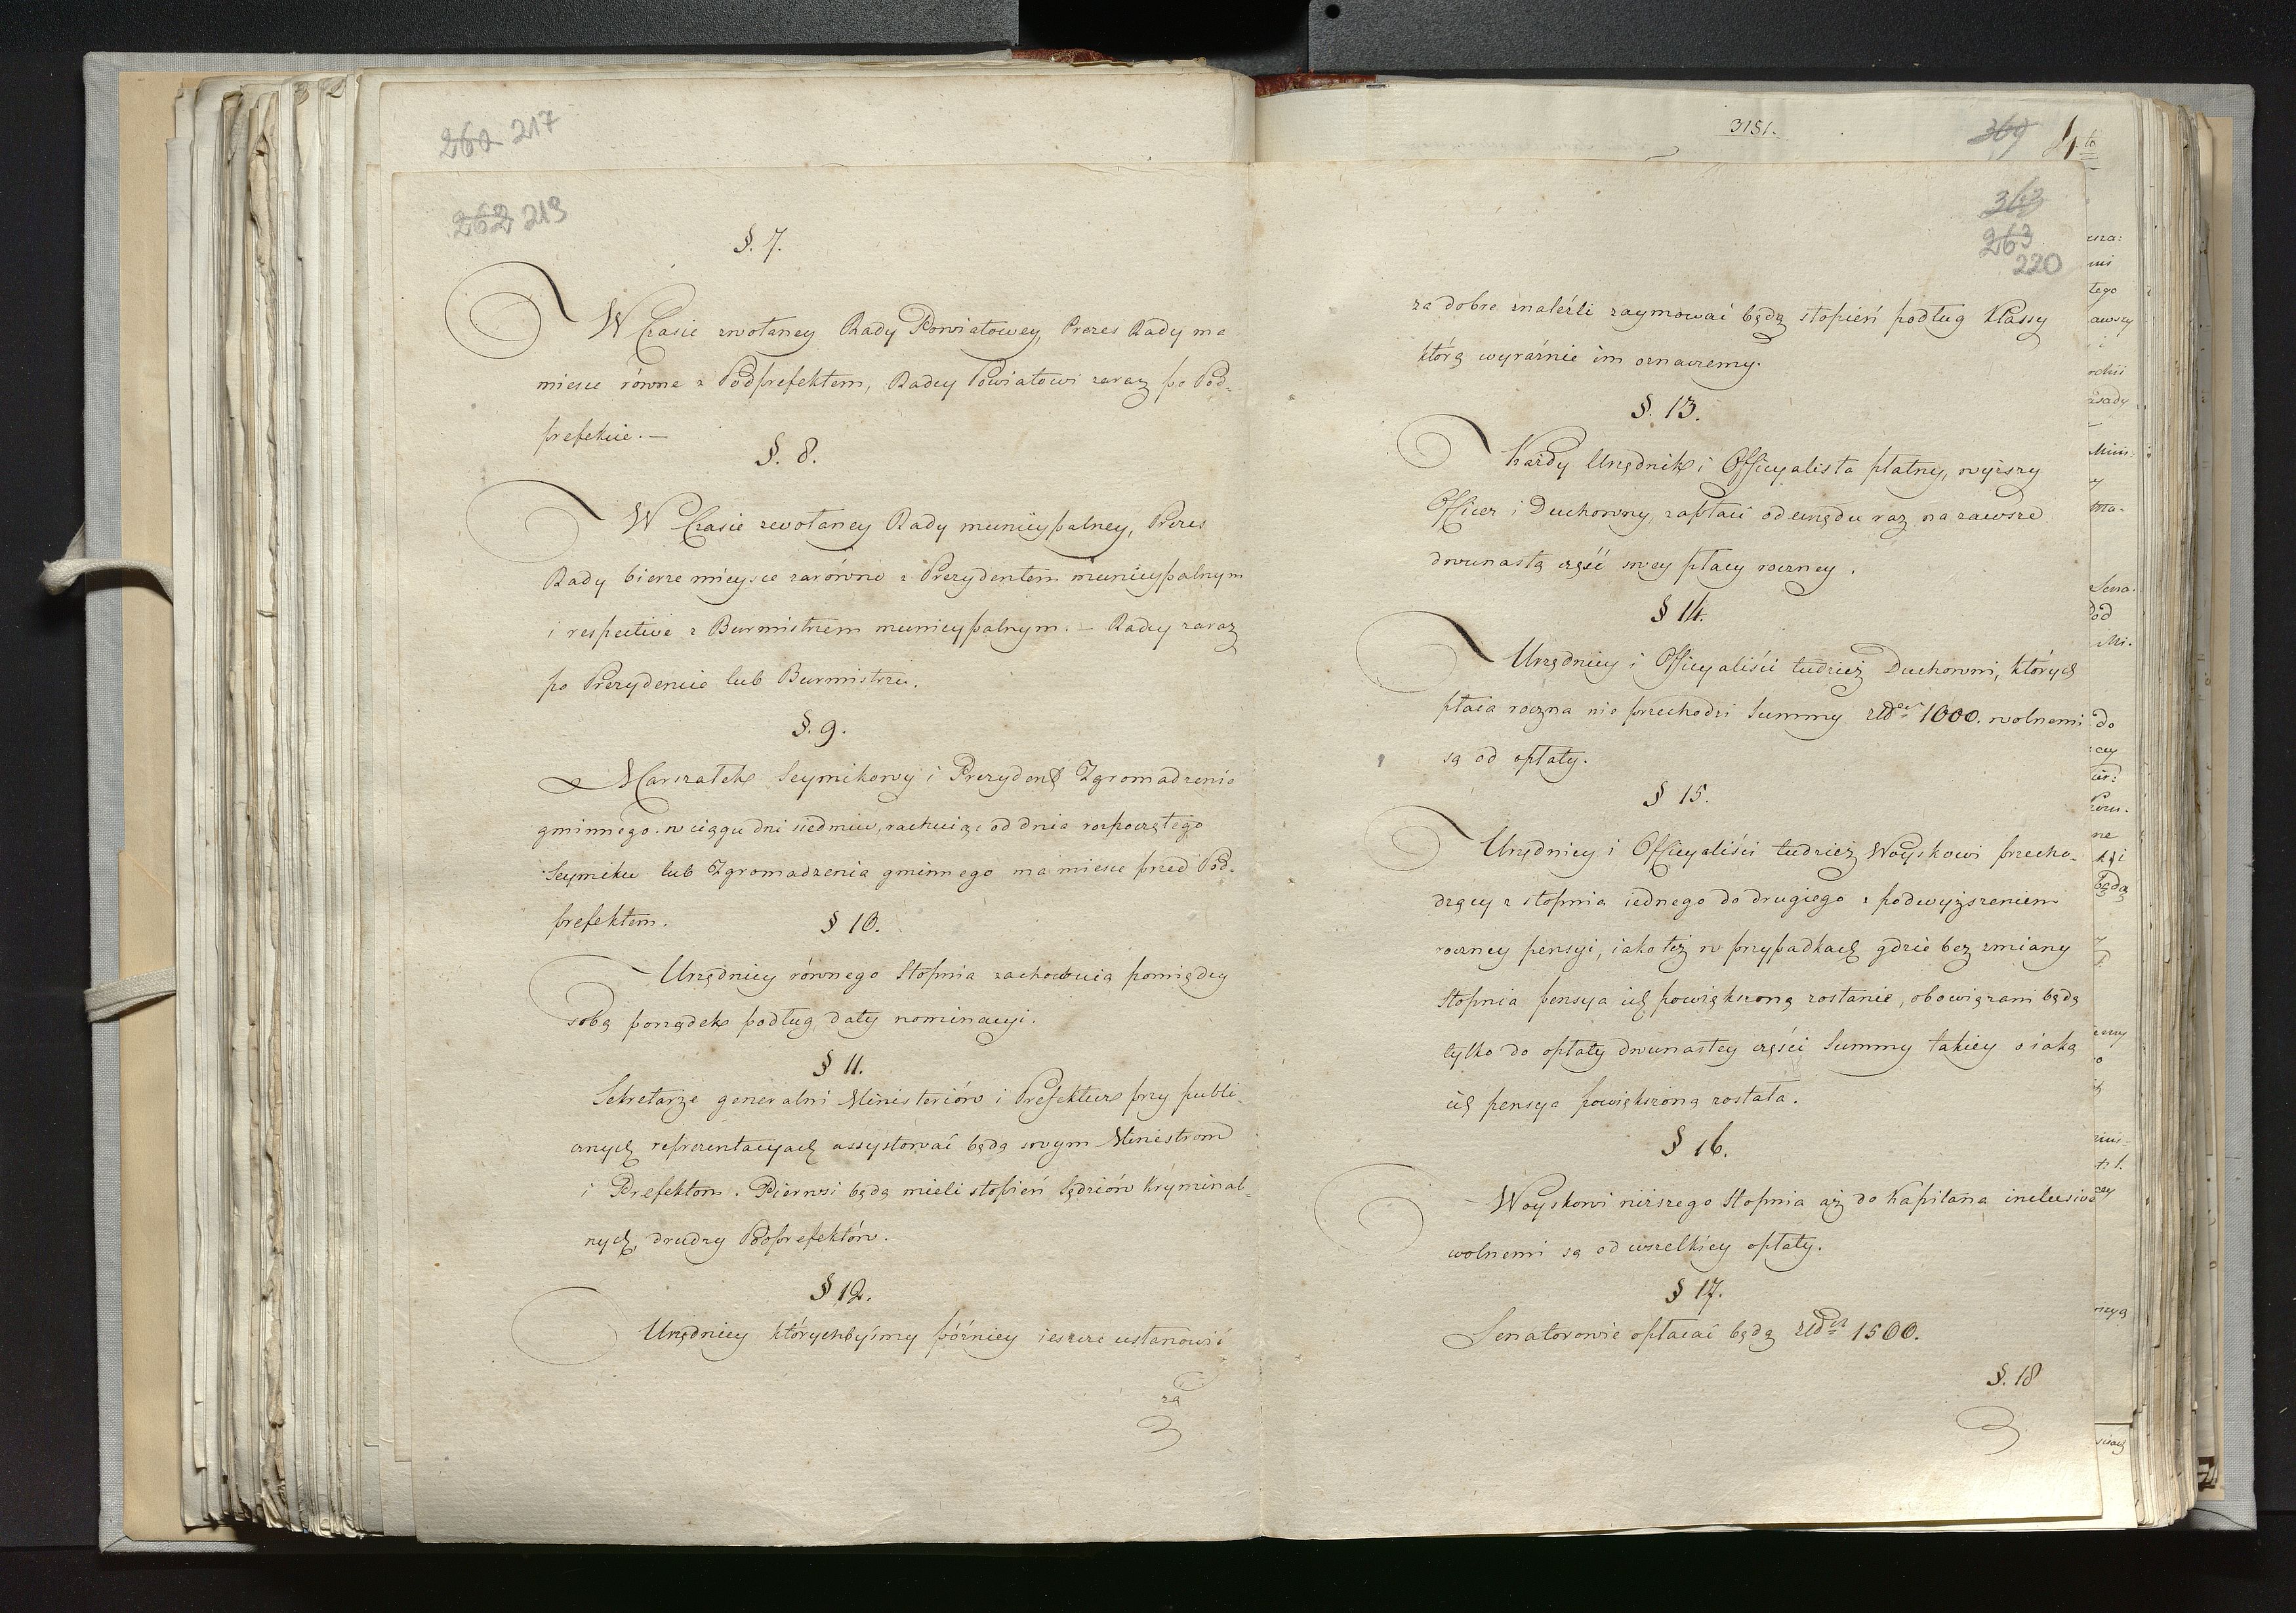 260 217
262 219
§. 7.
W Czasie zwołaney Rady Powiatowey, Prezes Rady ma
miesce równe z Podprefektem, Radcy Powiatowi zaraz po Pod-
prefekcie. –
§. 8.
W Czasie zwołaney Rady municypalney, Prezes
Rady bierze mieysce zarówno z Prezydentem municypalnym
i respective z Burmistrzem municypalnym. – Radcy zaraz
po Prezydencie lub Burmistrzu.
§. 9.
Marszałek Seymikowy i Prezydent Zgromadzenia
gminnego w ciągu dni siedmiu, rachuiąc od dnia rozpoczętego
Seymiku lub Zgromadzenia gminnego ma miesce przed Pod-
prefektem.
§ 10.
Urzędnicy równego Stopnia zachowuią pomiędzy
sobą porządek podług daty nominacyi.
§ 11.
Sekretarze generalni Ministeriów i Prefektur przy publi-
cznych reprezentacyach assystować będą swym Ministrom
i Prefektom. Pierwsi będą mieli stopień Sędziów Kryminal-
nych, drudzy Podprefektów.
§ 12.
Urzędnicy którychbyśmy późniey ieszcze ustanowić
za
3151.
369
4to
363
263
220
za dobre znaleźli zaymować będą stopień podług Klassy
którą wyraźnie im oznaczemy.
§. 13.
Każdy Urzędnik i Officyalista płatny, wyższy
Officer i Duchowny, zapłaci od urzędu raz na zawsze
dwunastą część swey płacy roczney.
§ 14.
Urzędnicy i Officyaliści tudzież Duchowni, których
płaca roczna nie przechodzi Summy złch 1000. wolnemi
są od opłaty.
§ 15.
Urzędnicy i Officyaliści tudzież Woyskowi przecho-
dzący z stopnia iednego do drugiego z podwyższeniem
roczney pensyi, iako też w przypadkach gdzie bez zmiany
Stopnia pensya ich powiększoną zostanie, obowiązani będą
tylko do opłaty dwunastey części Summy takiey o iaką
ich pensya powiększoną została.
§ 16.
– Woyskowi niższego Stopnia aż do Kapitana inclusive
wolnemi są od wszelkiey opłaty.
§ 17.
Senatorowie opłacać będą 1500.
§. 18